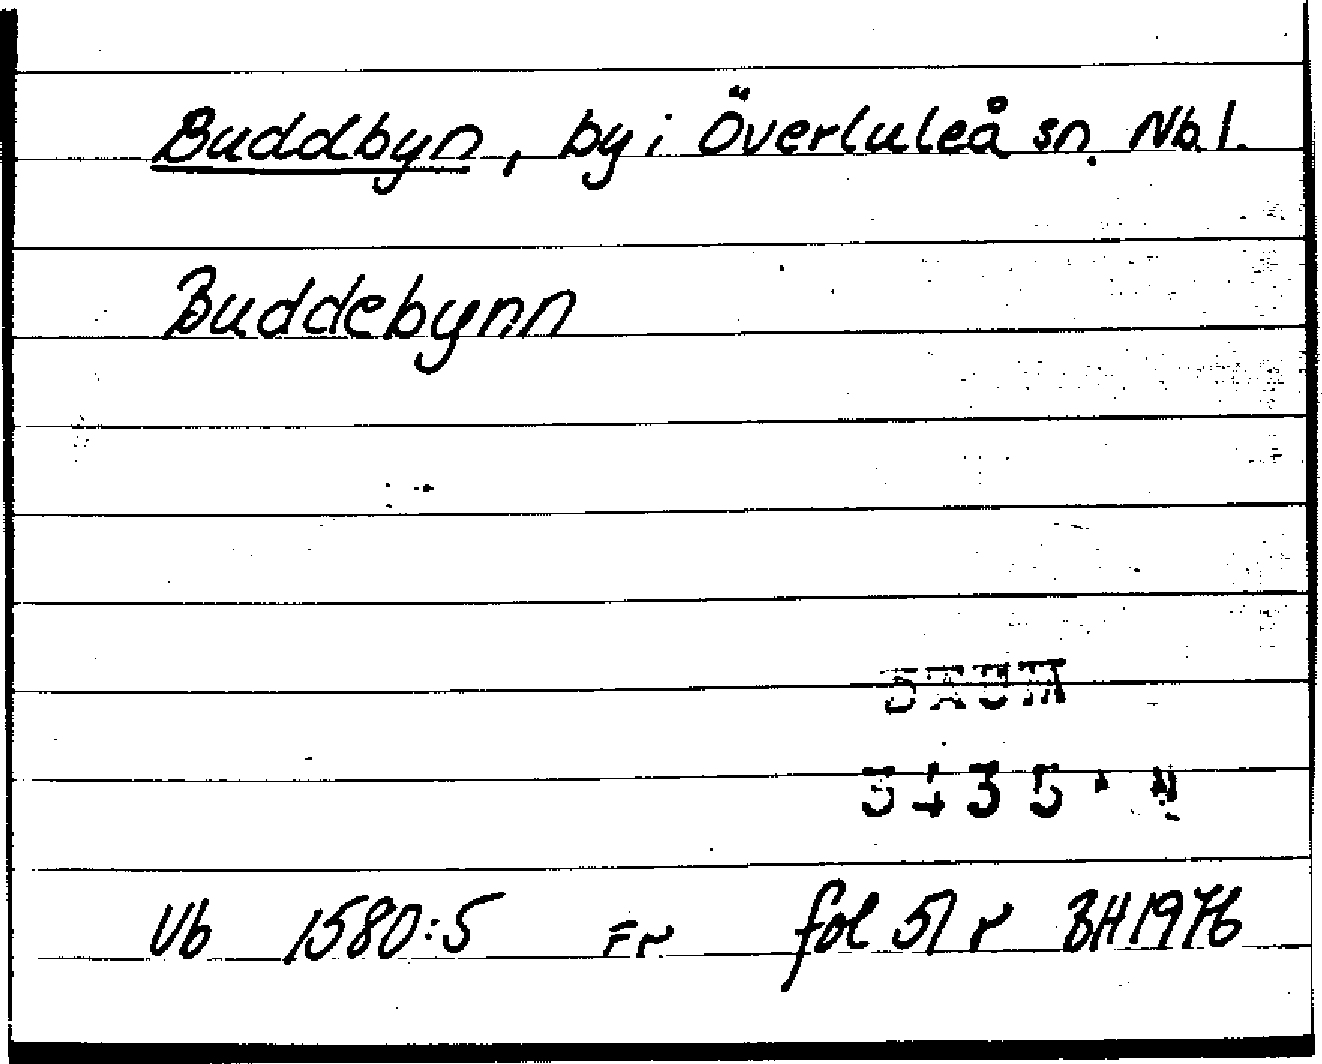 Buddbyn, by i Överluleå sn. Nb l.
Buddebynn
DAUM
Vb 1580:5 Fr fol 51 r BH 1976